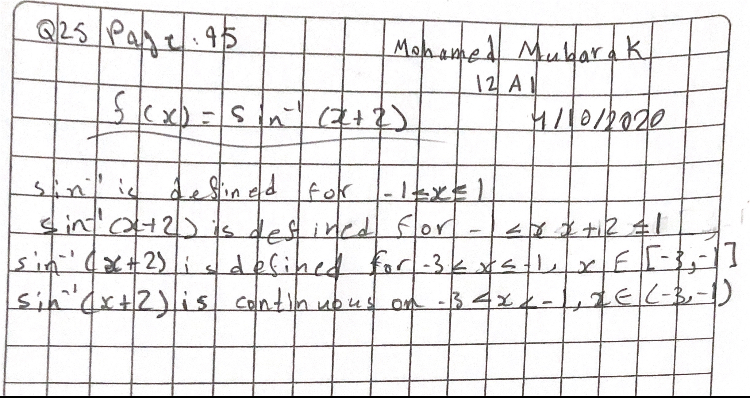 Q25 Page: 45
Mohamed Mubarak
12 A1
f(x) = sin⁻¹ (x+2)
4/10/2020
sin⁻¹ is defined for -1≤x≤1
sin⁻¹(x+2) is defined for -1 ≤ x+2 ≤1
sin⁻¹(x+2) is defined for -3≤x≤-1, x ∈ [-3,-1]
sin⁻¹(x+2) is continuous on -3<x<-1, x∈(-3,-1)